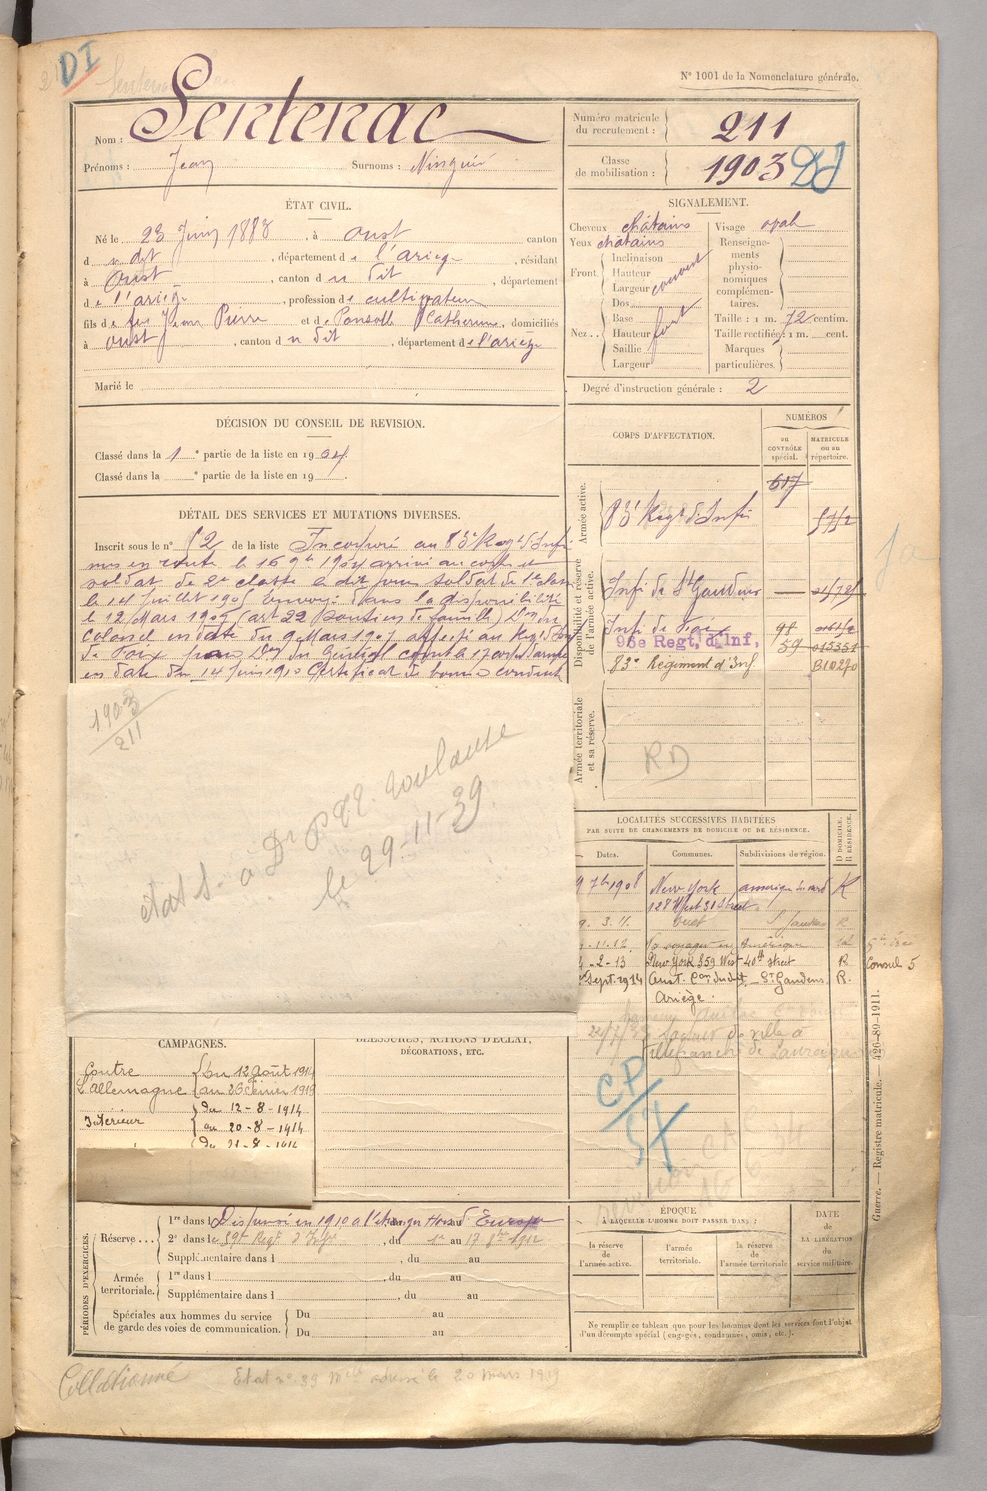 DI
N° 1001 de la Nomenclature générale.
Nom : Sentenac
Prénoms : Jean Surnoms : Ninquié
Numéro matricule du recrutement : 211
Classe de mobilisation : 1903
ÉTAT CIVIL.
Né le 23 Juin 1883, à Oust canton
d u dit, département de l'ariège, résidant
à Oust, canton d u dit, département
de l'ariège, profession de cultivateur
fils de feu Jean Pierre et de Ponsolle Catherine, domiciliés
à oust, canton d u dit, département de l'ariège
Marié le
SIGNALEMENT.
Cheveux châtains
Yeux châtains
Front. Inclinaison
Hauteur
Largeur couvert
Nez.. Dos
Base
Hauteur fort
Saillie
Largeur
Visage ovale
Renseignements physionomiques complémentaires.
Taille : 1 m. 72 centim.
Taille rectifiée : 1 m. cent.
Marques particulières.
Degré d'instruction générale : 2
DÉCISION DU CONSEIL DE REVISION.
Classé dans la 1 e partie de la liste en 1904
Classé dans la e partie de la liste en 19 .
DÉTAIL DES SERVICES ET MUTATIONS DIVERSES.
Inscrit sous le n° 82 de la liste Incorporé au 83e Regt d'Infie
mis en route le 16 9bre 1904 arrivé au corps et
soldat de 2e classe le dit jour soldat de 1e classe
le 14 Juillet 1905 Envoyé dans la disponibilité
le 12 Mars 1907 (art 22 soutien de famille)
Colonel en date du 9 Mars 1907 affecté au Regt d'Inf
de Foix Don du Général comt le 17e corps d'armée
en date du 14 Juin 1910 Certificat de bonne conduite
CORPS D'AFFECTATION.
NUMÉROS
au CONTRÔLE spécial.
MATRICULE ou au répertoire.
Armée active.
83e Regt d'Infie
617
Disponibilité et réserve de l'armée active.
Infie de St Gaudens
Infie de Foix
96e Regt, d'Inf,
59 015351
83e Régiment d'Inf
Armée territoriale et sa réserve.
RD
1903
211
état S. à Dr Toulouse
le 29-11-39.
LOCALITÉS SUCCESSIVES HABITÉES
PAR SUITE DE CHANGEMENTS DE DOMICILE OU DE RÉSIDENCE.
Dates. Communes. Subdivisions de région. D DOMICILE. R RÉSIDENCE.
9 7bre 1908 New York amerique du nord R
128 West 31 Street
9. 3. 11. Oust St Gaudens R.
-11-12. En voyage en Amérique
4-2-13 New York 359 West 40th Street R. Consul 5
Sept. 1914 Oust. Con du dit St Gaudens R.
Ariège.
de ville à
Villefranche de Lauragais
CP
57
CAMPAGNES.
Contre l'Allemagne du 12 août 1914
au 26 février 1919
Intérieur du 12-8-1914
au 20-8-1914
du 21-8-1914
BLESSURES, ACTIONS D'ÉCLAT,
DÉCORATIONS, ETC.
PÉRIODES D'EXERCICES.
Réserve... 1re dans l Dispensé en 1910 à l'étranger Hors d'Europe
2e dans le 59e Regt d'Infie, du 1er au 17 8bre 1912
Supplémentaire dans l , du au
Armée territoriale. 1re dans l , du au
Supplémentaire dans l , du au
Spéciales aux hommes du service de garde des voies de communication. Du au
Du au
ÉPOQUE
À LAQUELLE L'HOMME DOIT PASSER DANS :
la réserve de l'armée active.
l'armée territoriale.
la réserve de l'armée territoriale
DATE de LA LIBÉRATION du service militaire.
Ne remplir ce tableau que pour les hommes dont les services font l'objet
d'un décompte spécial (engagés, condamnés, omis, etc.).
Guerre. — Registre matricule. — 426-89-1911.
Collationné
Etat n° 39 adressé le 20 mars 1919